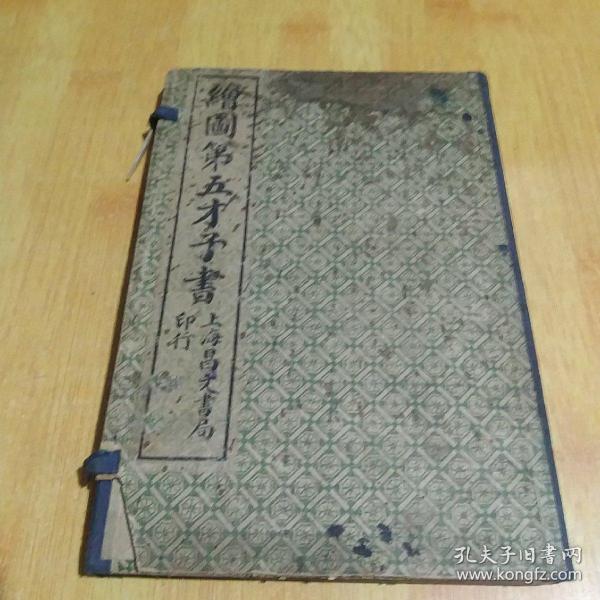 繪圖第五才子書
上海昌文書局
印行
孔夫子旧書网
www.kongfz.com